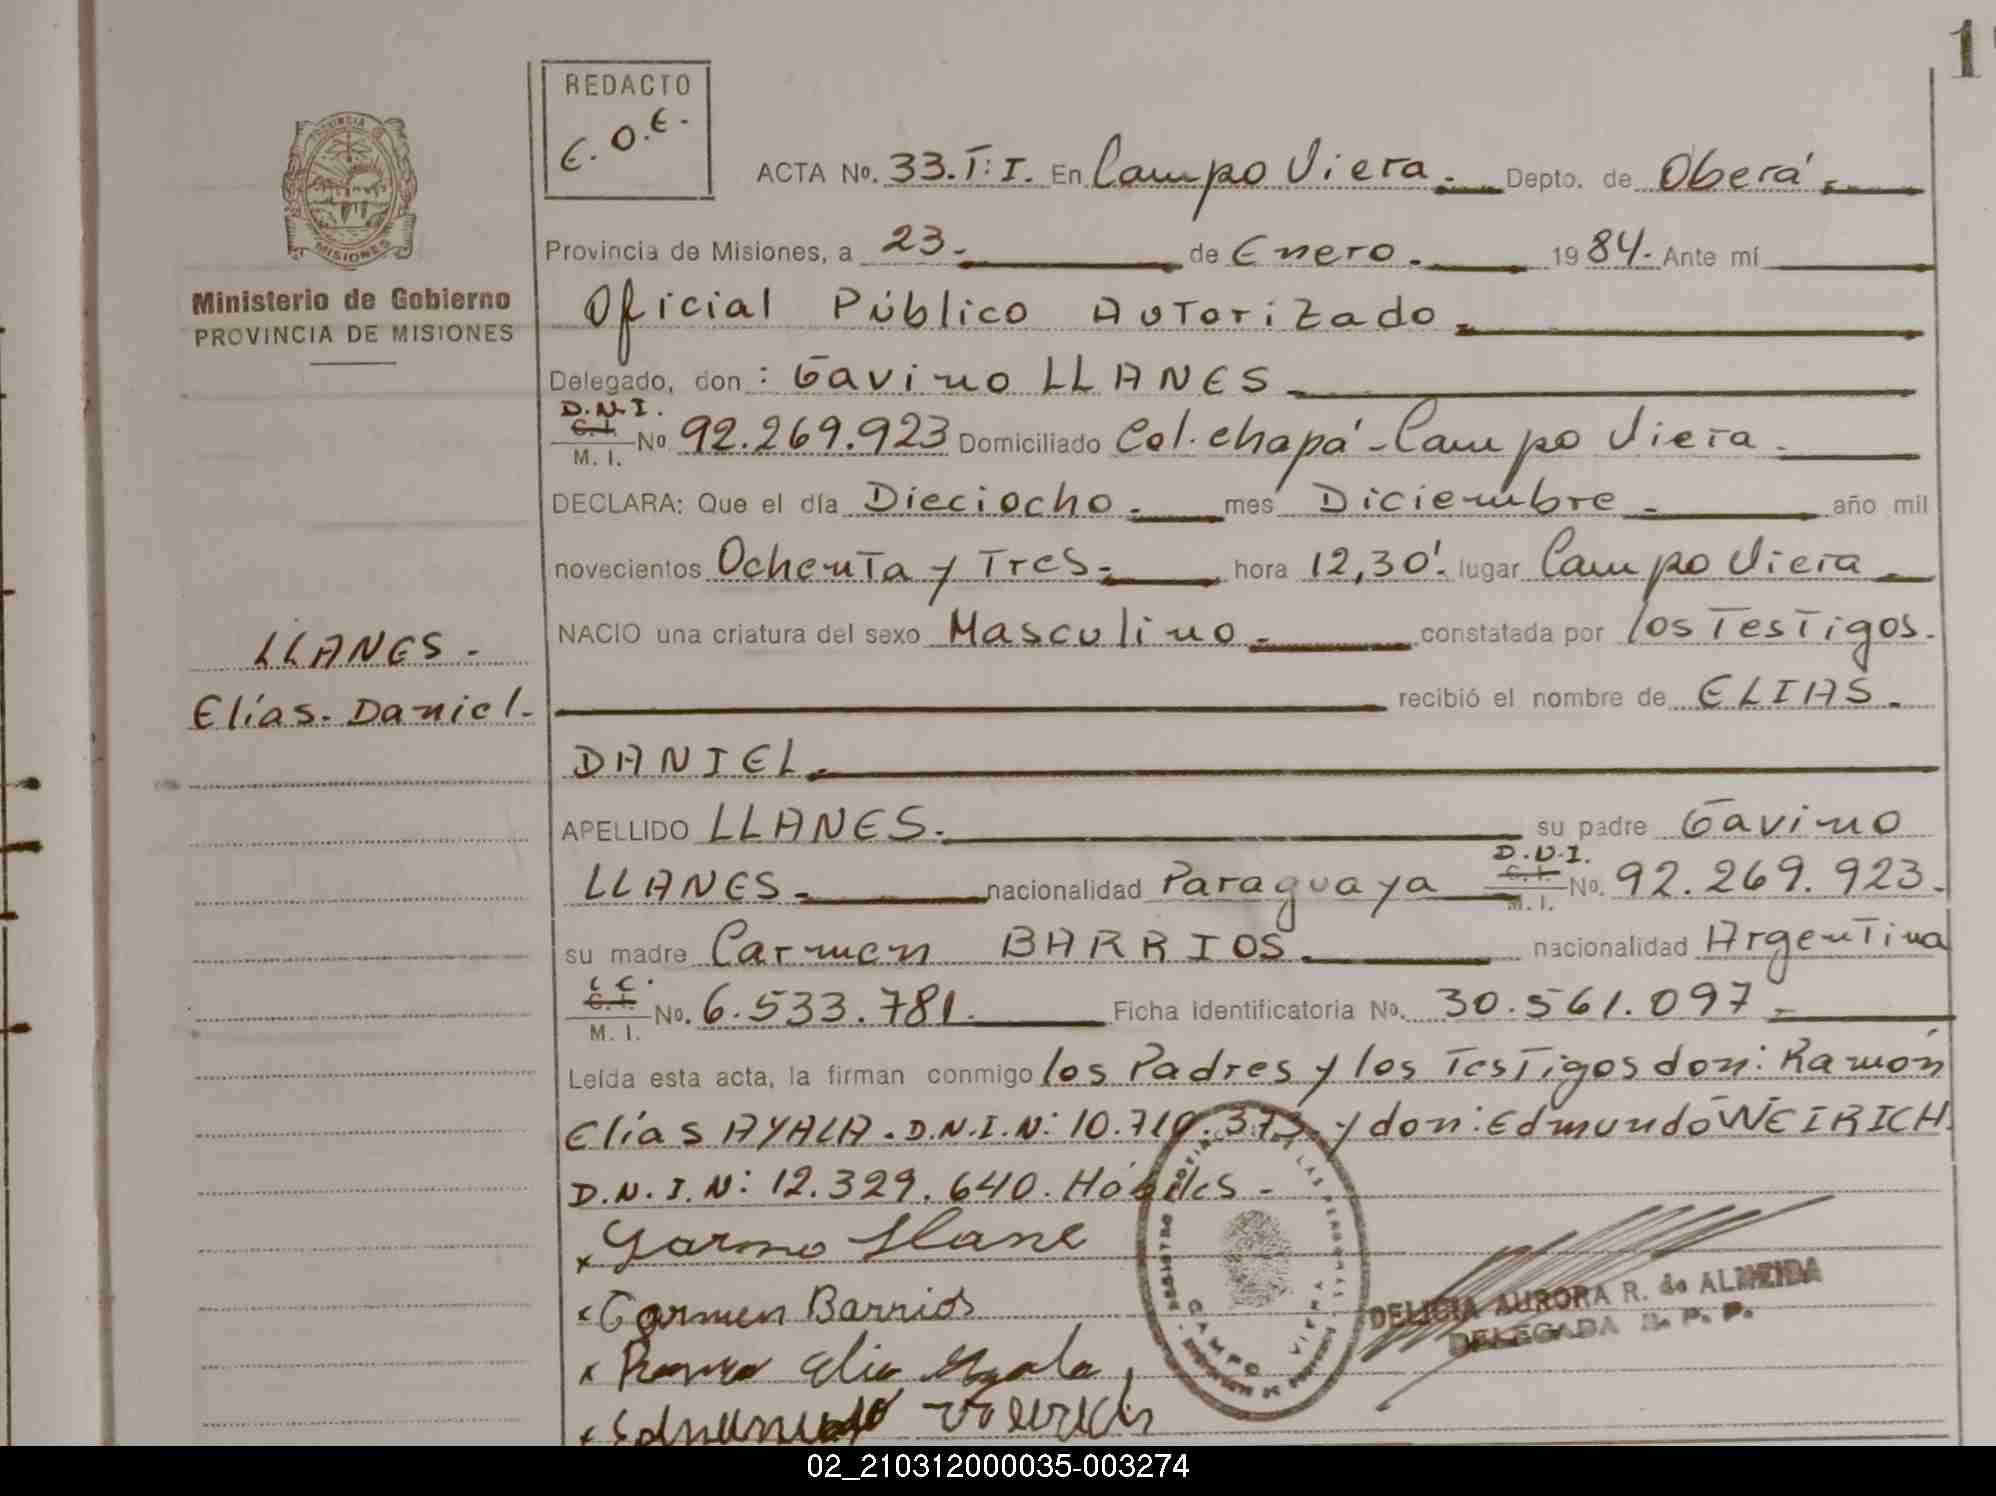 1
REDACTO
E.O.E.
PROVINCIA
MISIONES
Ministerio de Gobierno
PROVINCIA DE MISIONES
ACTA No. 33.T:I. En Campo Viera. Depto. de Oberá.
Provincia de Misiones, a 23. de Enero. 1984. Ante mí
Oficial Público Autorizado.
Delegado, don: Gavino LLANES
D.N.I.
C. I. M. I. No 92.269.923 Domiciliado Col. chapá-Campo Viera.
DECLARA: Que el día Dieciocho. mes Diciembre. año mil
novecientos Ochenta y Tres. hora 12,30'. lugar Campo Viera
NACIO una criatura del sexo Masculino. constatada por los Testigos.
LLANES.
Elías. Daniel.
recibió el nombre de ELIAS.
DANIEL.
APELLIDO LLANES. su padre Gavino
LLANES. nacionalidad Paraguaya D.N.I. C. I. M. I. No. 92.269.923.
su madre Carmen BARRIOS. nacionalidad Argentina
L C. C. I. M. I. No. 6.533.781. Ficha identificatoria No. 30.561.097
Leída esta acta, la firman conmigo los Padres y los Testigos don: Ramón
Elías AYALA. D.N.I.N: 10.710.373. y don: Edmundo WEIRICH.
D.N.I.N: 12.329.640. Hábiles.
Carmen Barrios
CAMPO VIERA
DELICIA AURORA R. de ALMEIDA
DELEGADA R. P. P.
02_210312000035-003274